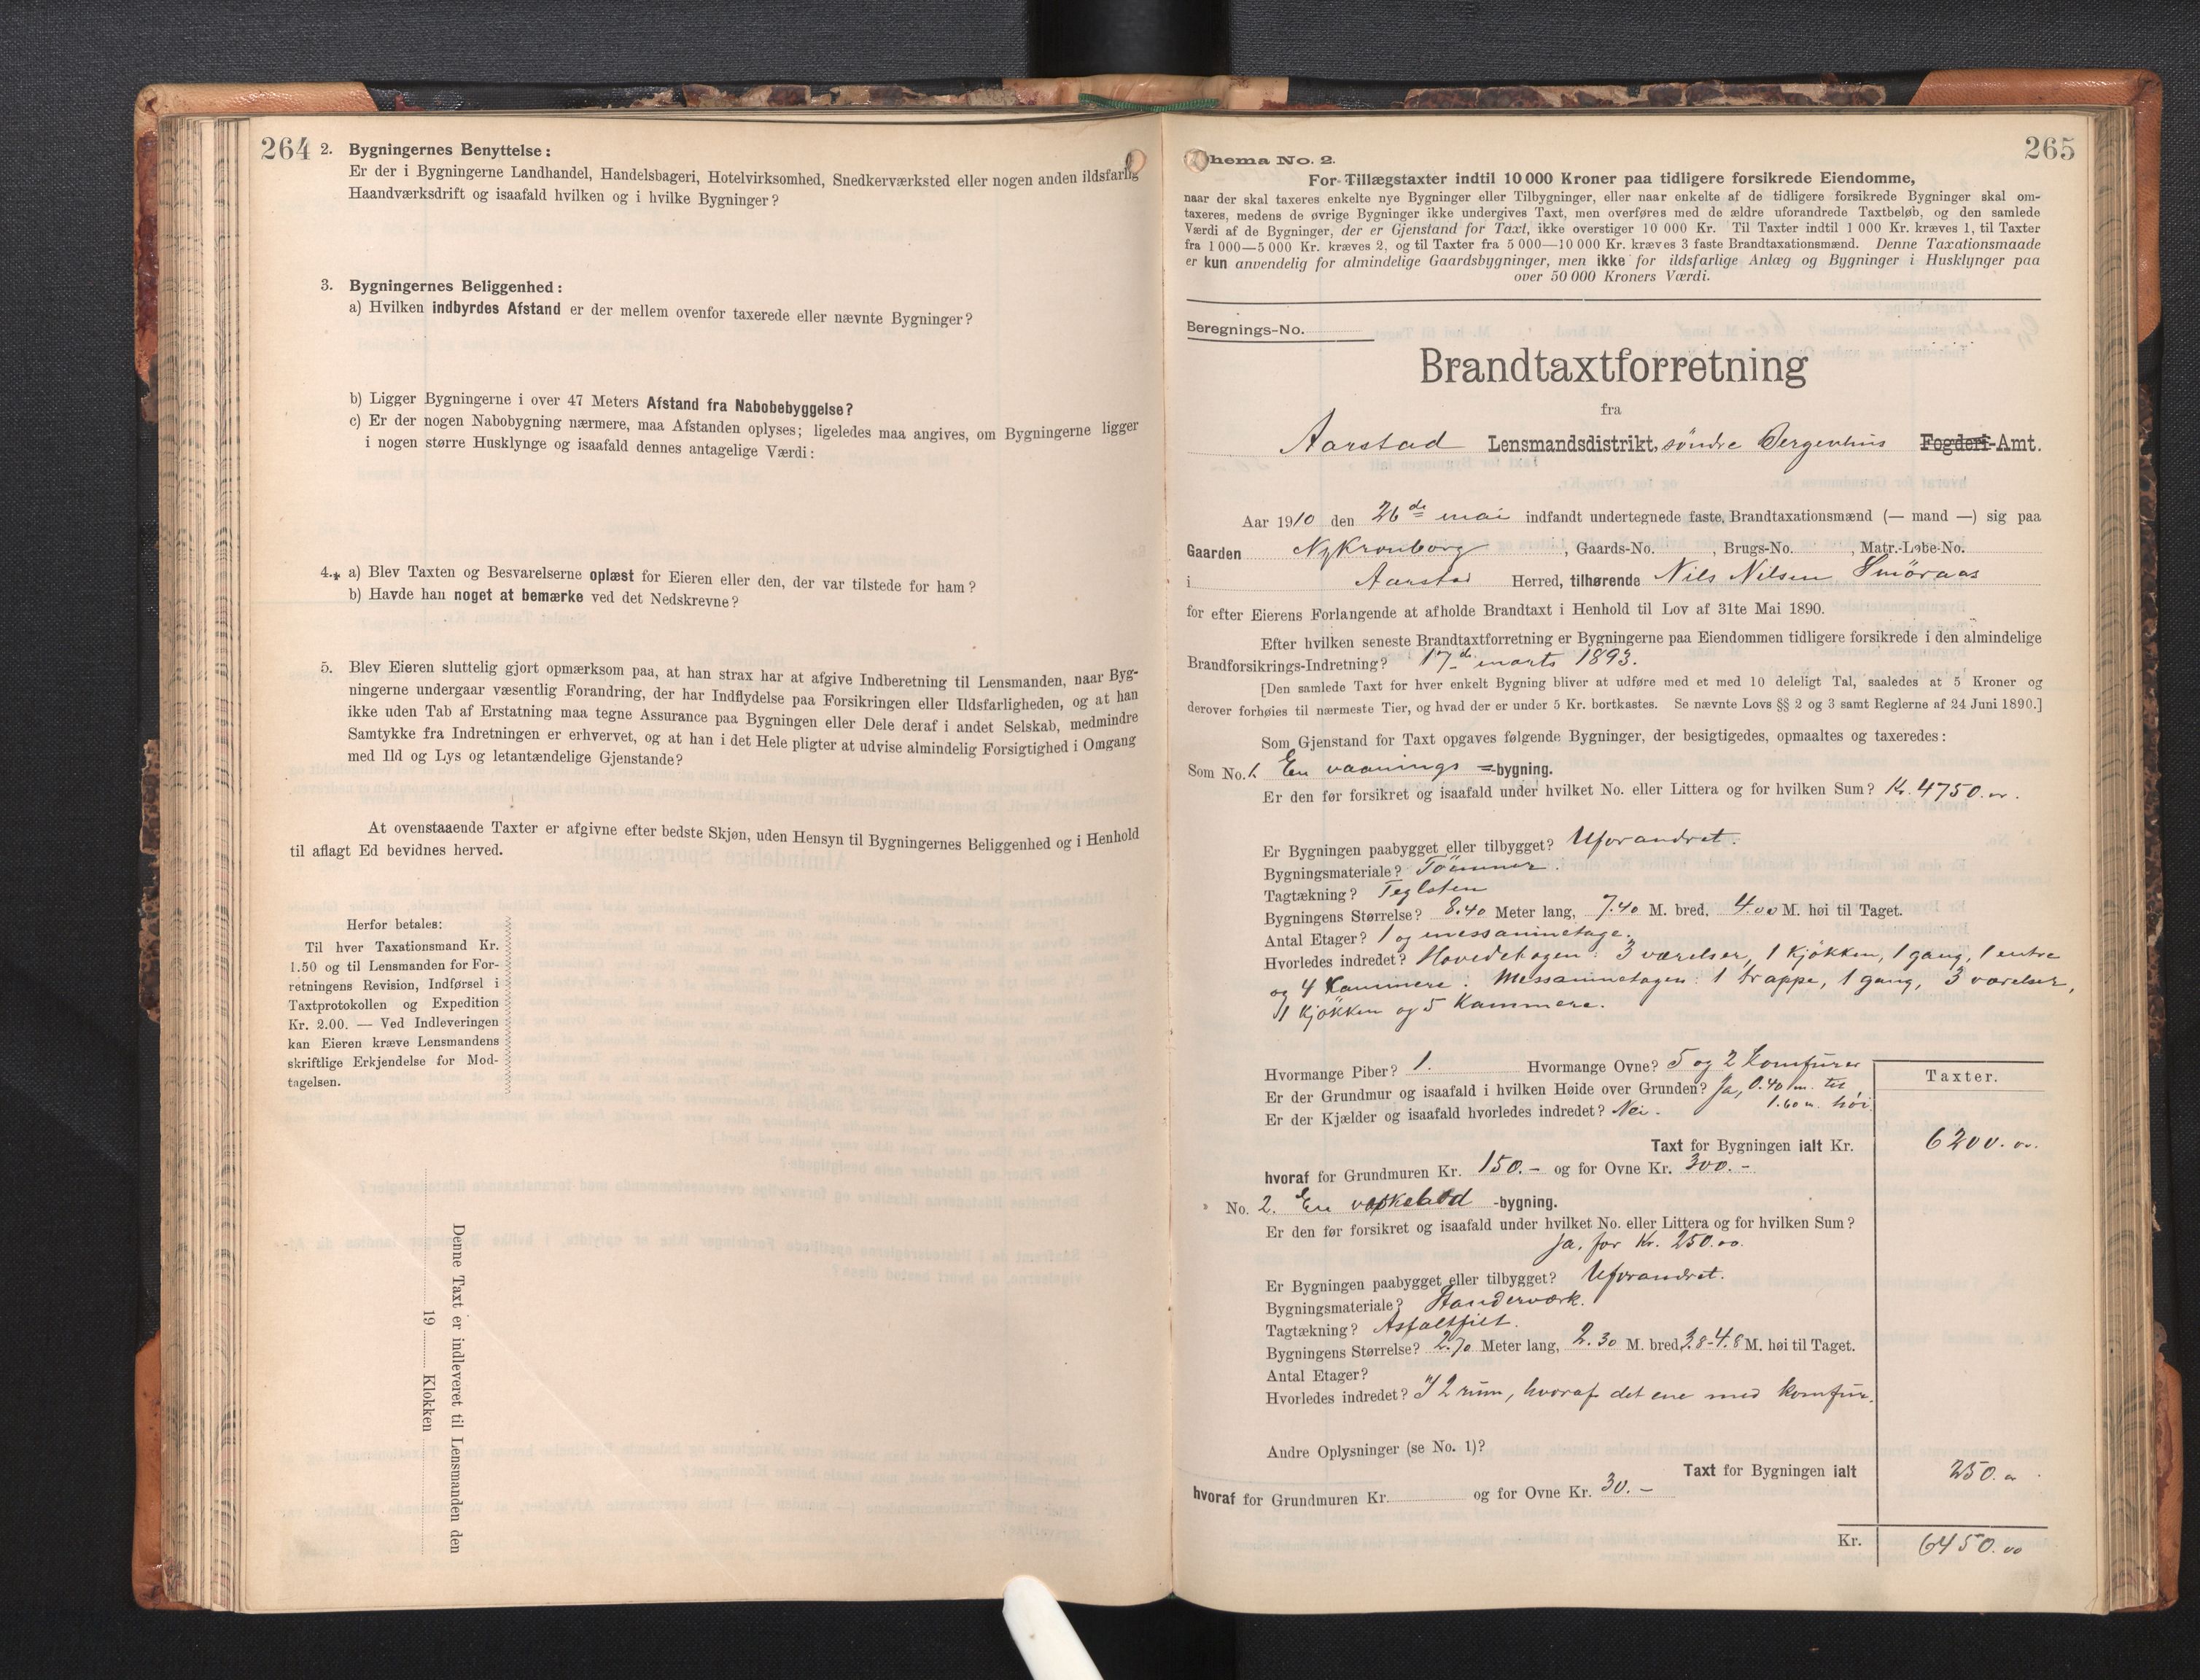 264
2. Bygningernes Benyttelse:
Er der i Bygningerne Landhandel, Handelsbageri, Hotelvirksomhed, Snedkerværksted eller nogen anden ildsfarlig
Haandværksdrift og isaafald hvilken og i hvilke Bygninger?
3. Bygningernes Beliggenhed:
a) Hvilken indbyrdes Afstand er der mellem ovenfor taxerede eller nævnte Bygninger?
b) Ligger Bygningerne i over 47 Meters Afstand fra Nabobebyggelse?
c) Er der nogen Nabobygning nærmere, maa Afstanden oplyses; ligeledes maa angives, om Bygningerne ligger
i nogen større Husklynge og isaafald dennes antagelige Værdi:
4. a) Blev Taxten og Besvarelserne oplæst for Eieren eller den, der var tilstede for ham?
b) Havde han noget at bemærke ved det Nedskrevne?
5. Blev Eieren sluttelig gjort opmærksom paa, at han strax har at afgive Indberetning til Lensmanden, naar Byg-
ningerne undergaar væsentlig Forandring, der har Indflydelse paa Forsikringen eller Ildsfarligheden, og at han
ikke uden Tab af Erstatning maa tegne Assurance paa Bygningen eller Dele deraf i andet Selskab, medmindre
Samtykke fra Indretningen er erhvervet, og at han i det Hele pligter at udvise almindelig Forsigtighed i Omgang
med Ild og Lys og letantændelige Gjenstande?
At ovenstaaende Taxter er afgivne efter bedste Skjøn, uden Hensyn til Bygningernes Beliggenhed og i Henhold
til aflagt Ed bevidnes herved.
Herfor betales:
Til hver Taxationsmand Kr.
1.50 og til Lensmanden for For-
retningens Revision, Indførsel i
Taxtprotokollen og Expedition
Kr. 2.00. — Ved Indleveringen
kan Eieren kræve Lensmandens
skriftlige Erkjendelse for Mod-
tagelsen.
Denne Taxt er indleveret til Lensmanden den
19 Klokken
265
hema No. 2.
For Tillægstaxter indtil 10 000 Kroner paa tidligere forsikrede Eiendomme,
naar der skal taxeres enkelte nye Bygninger eller Tilbygninger, eller naar enkelte af de tidligere forsikrede Bygninger skal om-
taxeres, medens de øvrige Bygninger ikke undergives Taxt, men overføres med de ældre uforandrede Taxtbeløb, og den samlede
Værdi af de Bygninger, der er Gjenstand for Taxt, ikke overstiger 10 000 Kr. Til Taxter indtil 1 000 Kr. kræves 1, til Taxter
fra 1 000—5 000 Kr. kræves 2, og til Taxter fra 5 000—10 000 Kr. kræves 3 faste Brandtaxationsmænd. Denne Taxationsmaade
er kun anvendelig for almindelige Gaardsbygninger, men ikke for ildsfarlige Anlæg og Bygninger i Husklynger paa
over 50 000 Kroners Værdi.
Beregnings-No.
Brandtaxtforretning
fra
Aarstad Lensmandsdistrikt, söndre Bergenhus Fogderi-Amt.
Aar 1910 den 26de mai indfandt undertegnede faste Brandtaxationsmænd (— mand —) sig paa
Gaarden NyKronborg, Gaards-No. , Brugs-No. , Matr.-Løbe-No.
i Aarstad Herred, tilhørende Nils Nilsen Smöraas
for efter Eierens Forlangende at afholde Brandtaxt i Henhold til Lov af 31te Mai 1890.
Efter hvilken seneste Brandtaxtforretning er Bygningerne paa Eiendommen tidligere forsikrede i den almindelige
Brandforsikrings-Indretning? 17de marts 1893.
[Den samlede Taxt for hver enkelt Bygning bliver at udføre med et med 10 deleligt Tal, saaledes at 5 Kroner og
derover forhøies til nærmeste Tier, og hvad der er under 5 Kr. bortkastes. Se nævnte Lovs §§ 2 og 3 samt Reglerne af 24 Juni 1890.]
Som Gjenstand for Taxt opgaves følgende Bygninger, der besigtigedes, opmaaltes og taxeredes:
Som No. 1. En vaanings =-bygning.
Er den før forsikret og isaafald under hvilket No. eller Littera og for hvilken Sum? Kr. 4750.00.
Er Bygningen paabygget eller tilbygget? Uforandret.
Bygningsmateriale? Tömmer.
Tagtækning? Teglsten
Bygningens Størrelse? 8.40 Meter lang, 7.40 M. bred, 4.00 M. høi til Taget.
Antal Etager? 1 og messaninetage.
Hvorledes indredet? Hovedetagen: 3 værelser, 1 kjökken, 1 gang, 1 entre
og 4 Kammere. Messaninetagen: 1 trappe, 1 gang, 3 værelser,
1 kjökken og 5 Kammere.
Hvormange Piber? 1. Hvormange Ovne? 5 og 2 komfurer
Er der Grundmur og isaafald i hvilken Høide over Grunden? Ja, 0.40 m. til
1.60 m. höi
Er der Kjælder og isaafald hvorledes indredet? Nei.
Taxter.
Taxt for Bygningen ialt Kr. 6200.00.
hvoraf for Grundmuren Kr. 150.- og for Ovne Kr. 300.-
No. 2. En vaskebod -bygning.
Er den før forsikret og isaafald under hvilket No. eller Littera og for hvilken Sum?
Ja, for Kr. 250.00.
Er Bygningen paabygget eller tilbygget? Uforandret.
Bygningsmateriale? Standerværk.
Tagtækning? Asfaltfilt.
Bygningens Størrelse? 2.70 Meter lang, 2.30 M. bred, 3.8-4.8 M. høi til Taget.
Antal Etager?
Hvorledes indredet? I 2 rum, hvoraf det ene med komfur.
Andre Oplysninger (se No. 1)?
Taxt for Bygningen ialt 250.00
hvoraf for Grundmuren Kr. og for Ovne Kr. 30.-
Kr. 6450.00